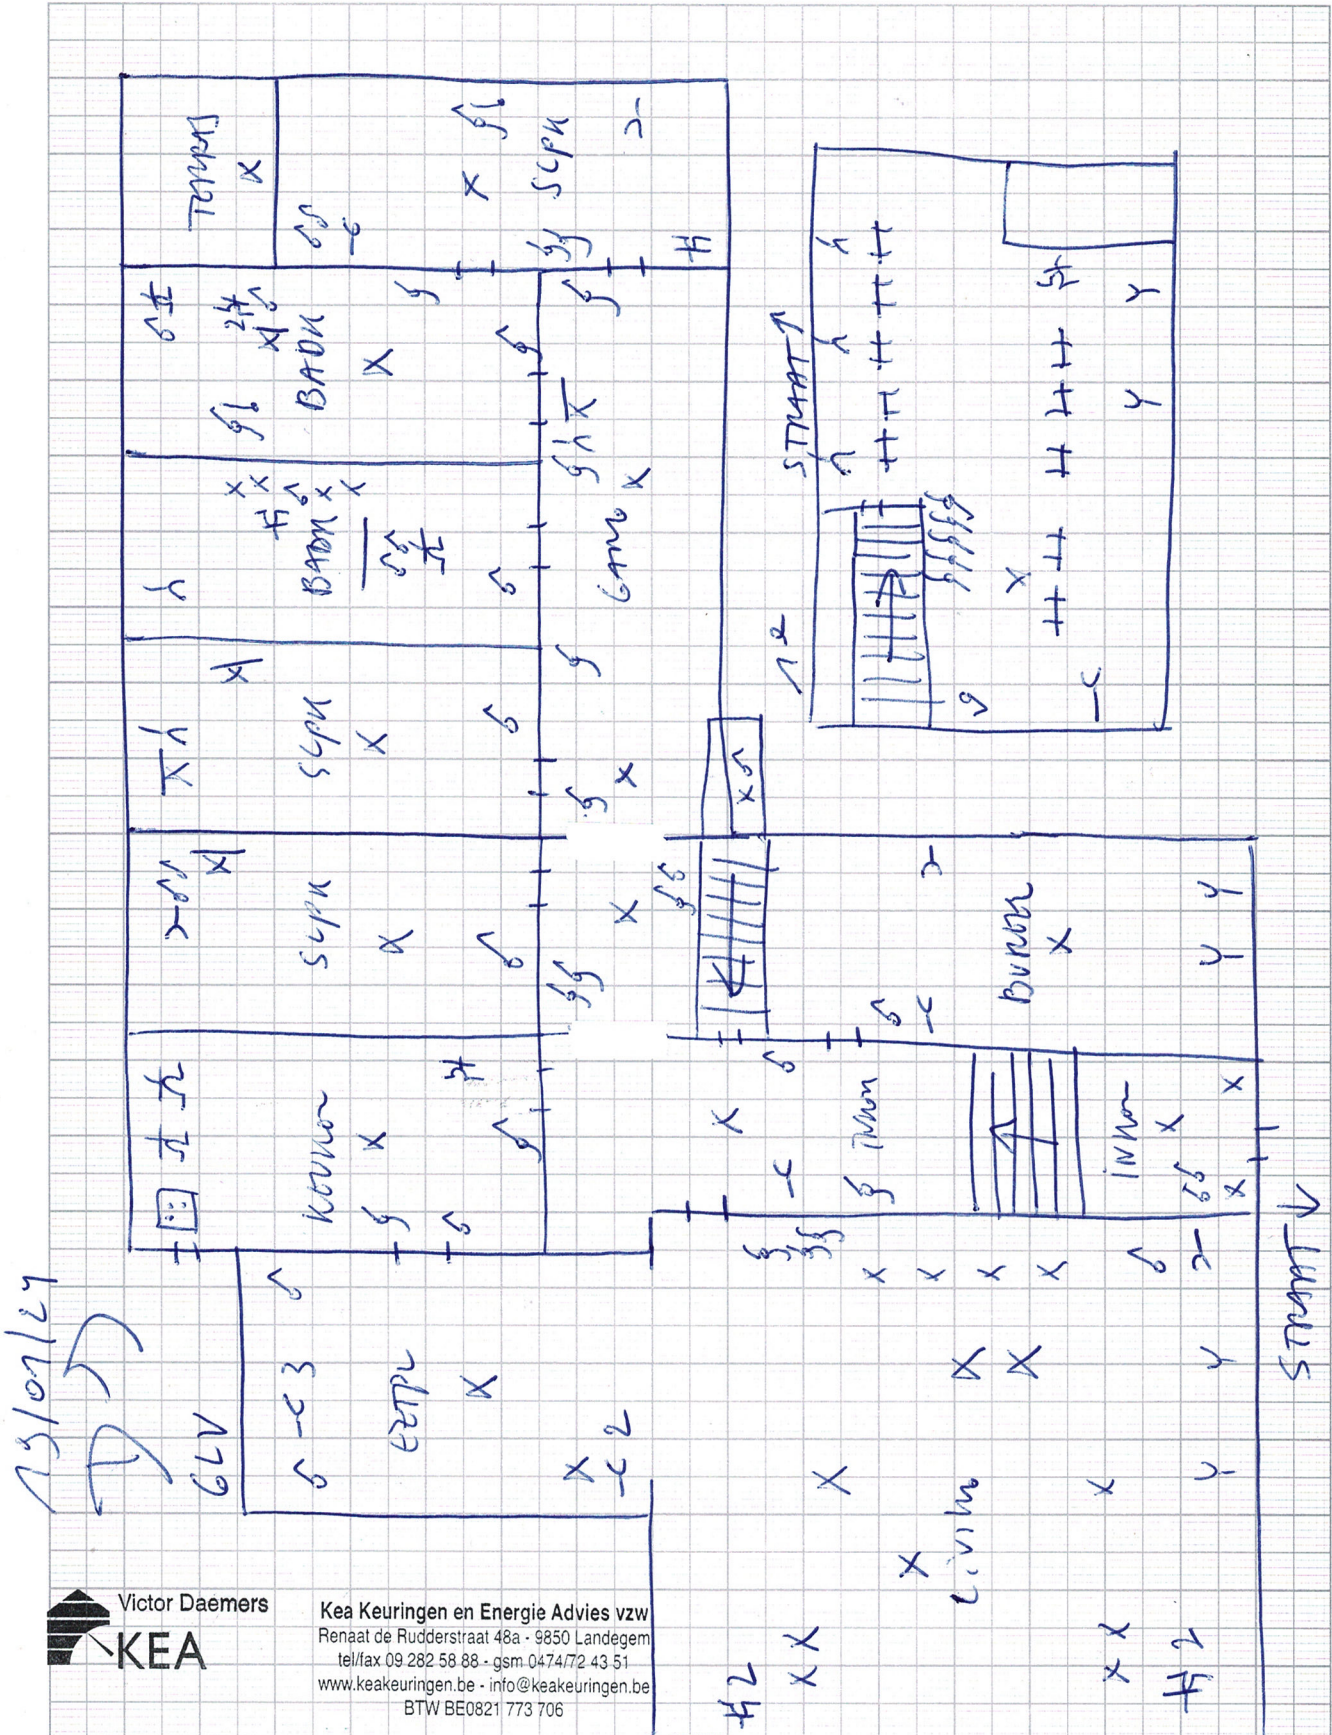 19/01/24
GLV
TERRAS
SLPK
BADK
BADK
GANG
SLPK
SLPK
KEUKEN
EETPL
3
2
STRAAT
1e
BUREAU
INKOM
INKOM
LIVING
2
2
STRAAT
Victor Daemers
KEA
Kea Keuringen en Energie Advies vzw
Renaat de Rudderstraat 48a - 9850 Landegem
tel/fax 09 282 58 88 - gsm 0474/72 43 51
www.keakeuringen.be - info@keakeuringen.be
BTW BE0821 773 706